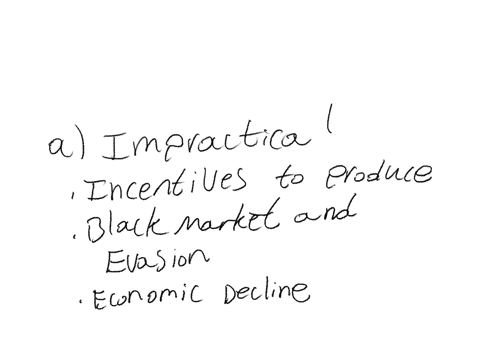 a) Impractical
. Incentives to produce
. Black market and
Evasion
. Economic Decline